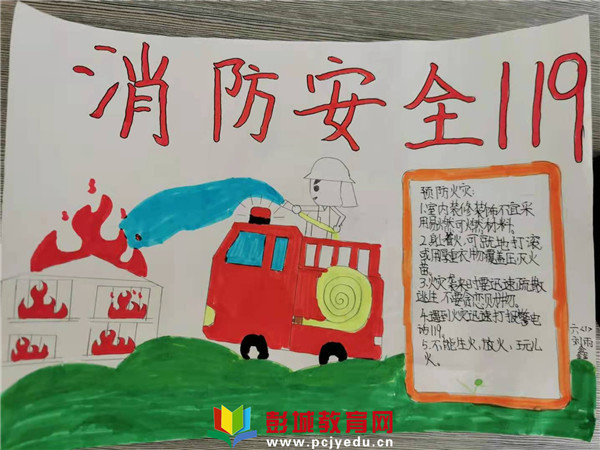 消防安全119
预防火灾:
1.室内装修装饰不宜采
用易燃可燃材料。
2.身上着火,可就地打滚
或用厚重衣物覆盖压灭火
苗。
3.火灾袭来时要迅速疏散
逃生不要贪恋财物。
4.遇到火灾迅速打报警电
话119。
5.不能生火,放火,玩儿
火。
刘雨
鑫
彭城教育网
www.pcjyedu.cn